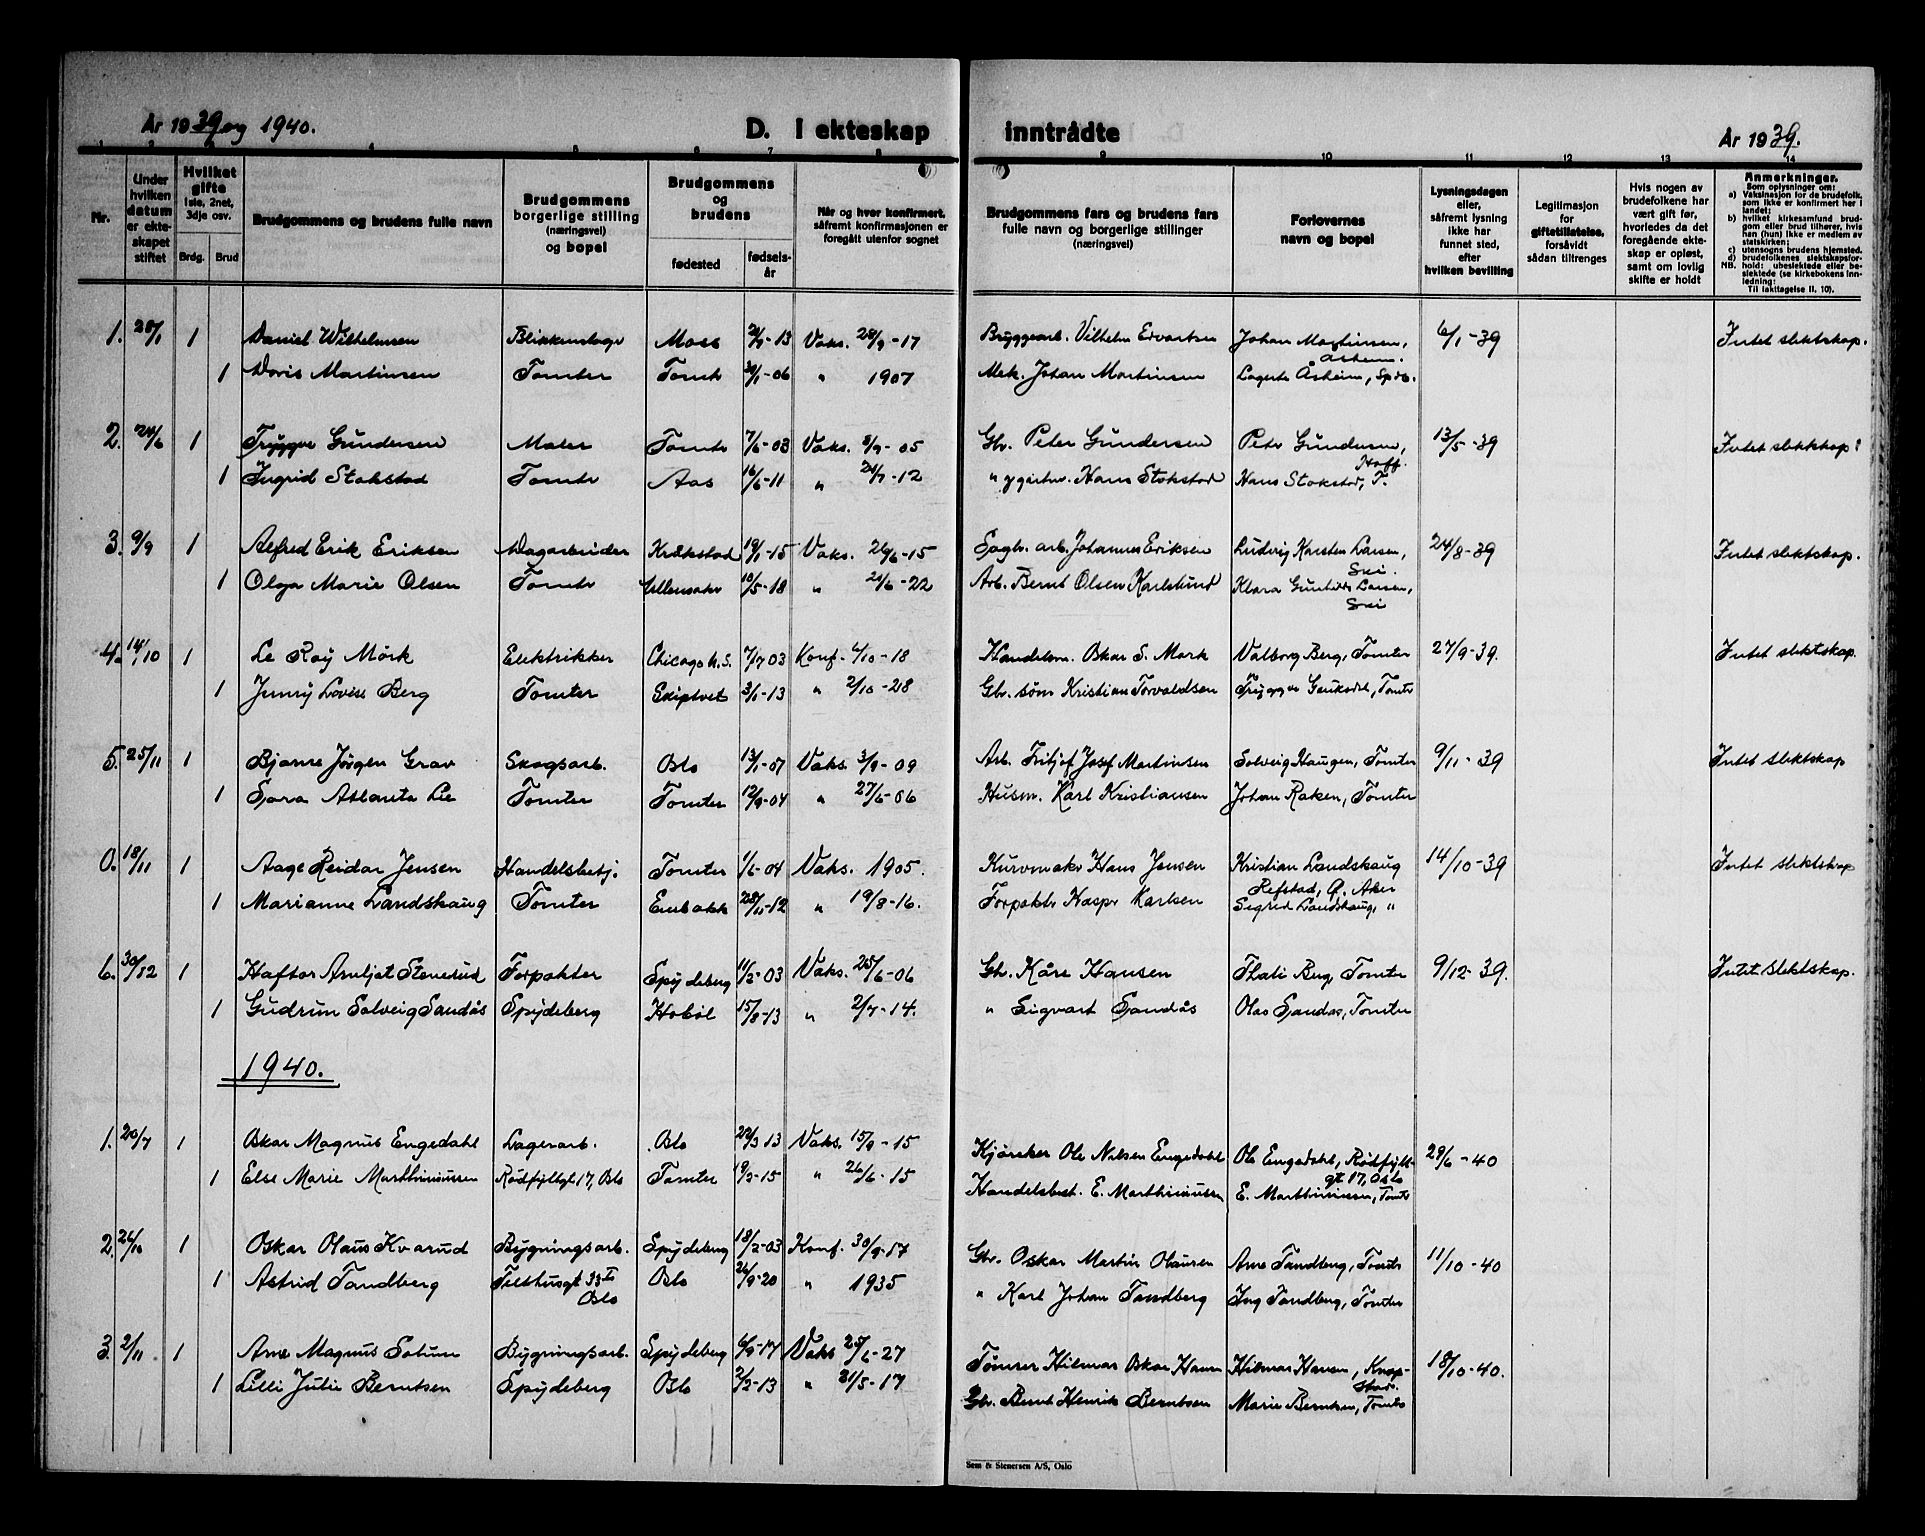 År 1939 og 1940.
D. I ekteskap inntrådte
År 1939.
1 2 3 4 5 6 7 8 9 10 11 12 13 14
Nr.
Under hvilken datum er ekteskapet stiftet
Hvilket gifte 1ste, 2net, 3dje osv.
Brdg. Brud
Brudgommens og brudens fulle navn
Brudgommens borgerlige stilling (næringsvei) og bopel
Brudgommens og brudens
fødested
fødselsår
Når og hvor konfirmert, såfremt konfirmasjonen er foregått utenfor sognet
Brudgommens fars og brudens fars fulle navn og borgerlige stillinger (næringsvei)
Forlovernes navn og bopel
Lysningsdagen eller, såfremt lysning ikke har funnet sted, efter hvilken bevilling
Legitimasjon for giftetillatelse, forsåvidt sådan tiltrenges
Hvis nogen av brudefolkene har vært gift før, hvorledes da det foregående ekteskap er opløst, samt om lovlig skifte er holdt
Anmerkninger.
Som oplysninger om:
a) Vaksinasjon for de brudefolk, som ikke er konfirmert her i landet;
b) hvilket kirkesamfund brudgom eller brud tilhører, hvis han (hun) ikke er medlem av statskirken;
c) utensogns brudens hjemsted.
d) brudefolkenes slektskapsforhold: ubeslektede eller beslektede (se kirkebokens innledning:
NB.
Til iakttagelse II. 10).
1. 28/1 1 Daniel Wilhelmsen Blikkenslager Moss 13 Vaks. 28/9-17 Bryggearb. Vilhelm Edvardsen Johan Martinsen, Åsheim. 6/1-39 Intet slektskap.
1 Doris Martinsen Tomter Tomt 06 " 1907 Mek. Johan Martinsen Åsheim,
2. 24/6 1 Trygve Gundersen Maler Tomter 7/6-03 Vaks. 8/9-05 Gbr. Peter Gundersen Peter Gundersen, Hoff. 13/5-39 Intet slektskap!
1 Ingrid Stokstad Tomter Aas 16/6-11 " 21/7-12 " Hans Stokstad Hans Stokstad, T.
3. 9/9 1 Alfred Erik Eriksen Dagarbeider Kråkstad 19/1-15 Vaks. 26/6-15 Sagbr. arb. Johannes Eriksen Ludvig Karsten Larsen, Ski. 24/8-39 Intet slektskap.
1 Olga Marie Olsen Tomter Ullensaker 10/5-18 " 21/6-22 Arb. Bernt Olsen Karlslund Klara Gunhild Larsen, Ski
4. 14/10 1 Le Roy Mörk Elektrikker Chicago U.S. 7/7 03 Konf. 4/10-18 Handelsm. Oskar S. Mork Valborg Berg, Tomter 27/9-39. Intet slektskap.
1 Jenny Lovise Berg Tomter Skiptvet 3/1-13 " 2/10-28 Gbr. søn Kristian Torvaldsen Trygve, Tomter
5. 25/11 1 Bjarne Jörgen Grav Skogsarb. Oslo 13/1-07 Vaks. 3/9-09 Arb. Fritjof Josef Martinsen Solveig Haugen, Tomter 9/11-39 Intet slektskap
1 Sara Atlanta Lie Tomter Tomter 12/9-04 " 27/6-06 Husm. Karl Kristiansen Johan Raken, Tomter
0. 18/11 1 Aage Reidar Jensen Handelsbetj. Tomter 1/6-04 Vaks. 1905. Kurvmaker Hans Jensen Kristian Landskaug Refstad, Ø. Aker 14/10-39 Intet slektskap
1 Marianne Landskaug Tomter Enebakk 28/11-12 " 19/8-16. Forpakter Kasper Karlsen Sigrid Landskaug, "
6. 30/12 1 Haftor Arnljot Stenerud Forpakter Spydeberg 11/2-03 Vaks. 25/6-06 Gbr. Kåre Hansen Thali Berg, Tomter 9/12-39. Intet slektskap.
1 Gudrun Solveig Sandås Spydeberg Hobøl 15/8-13 " 2/7-14. " Sigvart Sandås Olav Sandås, Tomter
1940.
1. 20/7 1 Oskar Magnus Engedahl Lagerarb. Oslo 29/3 13 Vaks. 15/9-15 Kjørsker Ole Nilsen Engedahl Ole Engedahl, Rødfyllgt 17, Oslo 29/6-40
1 Else Marie Marthiniussen Rødfyllgt 17, Oslo Tomter 19/2-15 " 26/6-15 Handelsbest. E. Marthiniussen E. Marthiniussen, Tomter
2. 26/10 1 Oskar Olaus Kvarud Bygningsarb. Spydeberg 18/2-03 Konf. 30/9-17 Gbr. Oskar Martin Olausen Arne Tandberg, Tomter 11/10-40
1 Astrid Tandberg Tilthusgt 33 I Oslo Oslo 26/9-20 " 1935 " Karl Johan Tandberg Ing Tandberg, Tomter
3. 2/11. 1 Arne Magnus Solum Bygningsarb. Spydeberg 6/9-17 Vaks 25/6-27 Tømrer Hilmar Oskar Hansen Hilmar Hansen, Knapstad. 18/10-40.
1 Lilli Julie Berntsen Spydeberg Oslo 2/2-13 " 21/5-17 Gbr. Bernt Henrik Berntsen Marie Berntsen, Tomter
Sem & Stenersen A/S, Oslo